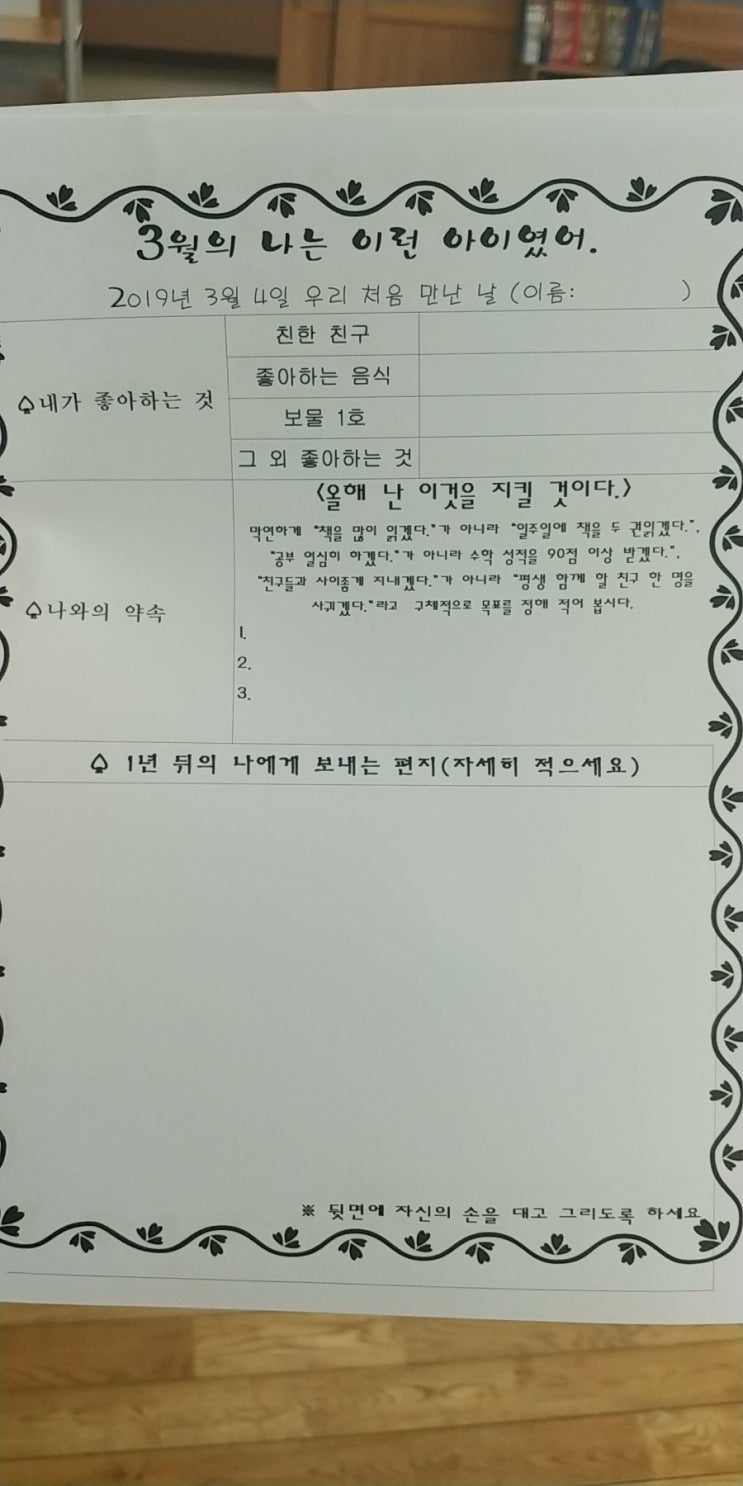 3월의 나는 이런 아이였어.
2019년 3월 4일 우리 처음 만난 날 (이름: )
♤내가 좋아하는 것
친한 친구
좋아하는 음식
보물 1호
그 외 좋아하는 것
♤나와의 약속
<올해 난 이것을 지킬 것이다.>
막연하게 "책을 많이 읽겠다."가 아니라 "일주일에 책을 두 권읽겠다.",
"공부 열심히 하겠다."가 아니라 수학 성적을 90점 이상 받겠다.",
"친구들과 사이좋게 지내겠다."가 아니라 "평생 함께 할 친구 한 명을
사귀겠다."라고 구체적으로 목표를 정해 적어 봅시다.
1.
2.
3.
♤ 1년 뒤의 나에게 보내는 편지(자세히 적으세요)
※ 뒷면에 자신의 손을 대고 그리도록 하세요